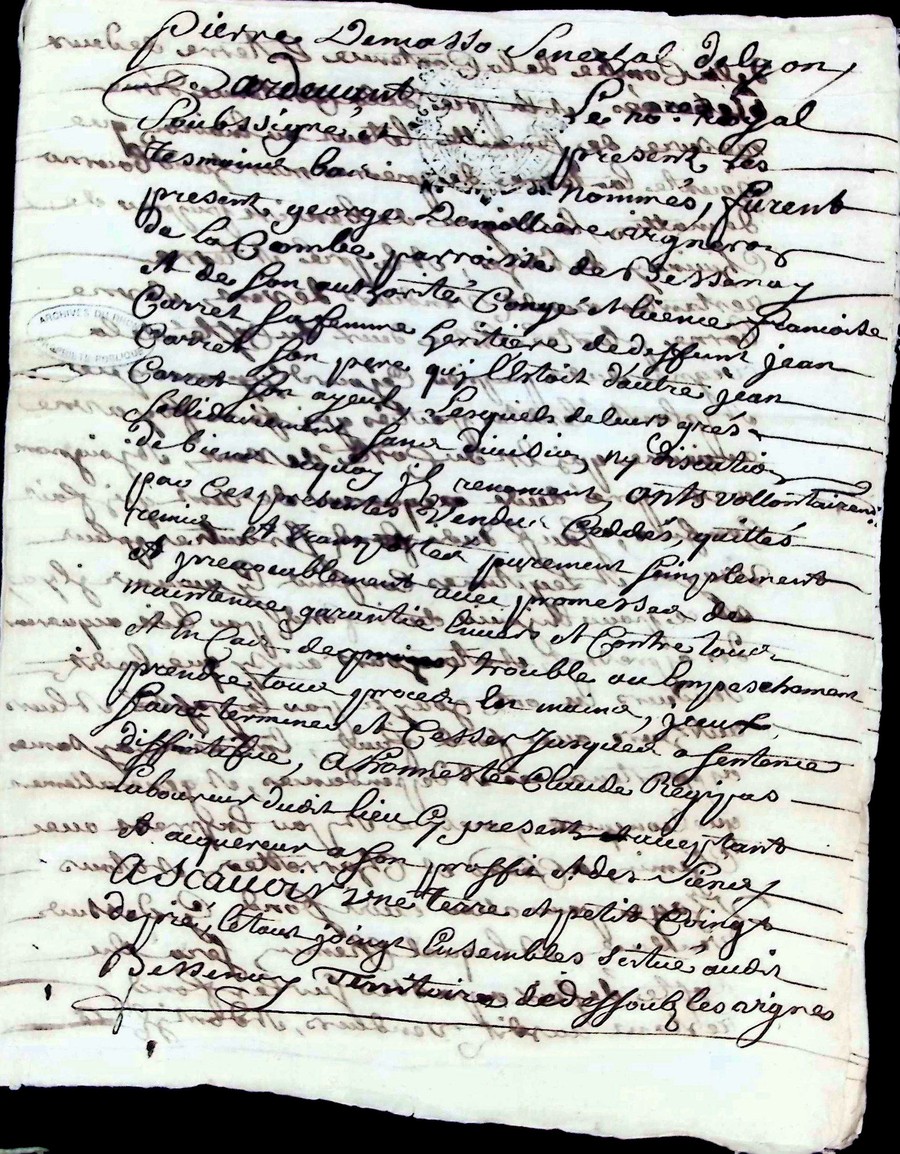 Pierre Demasso Senechal de Lyon
Pardevant Le no.re Royal
Soubssigné et present les
tesmoins bas nommés, furent
present, george Demolliere vigneron
de la Combe parroisse de Bessenay
Et de son authorité Congé et licence francoise
Carret sa femme heritiere de deffunt jean
Carret son pere qui l'estoit d'autre jean
Carret son ayeul, Lesquels de leurs grés
sollidairement sans division ny discution
de biens a quoy jls renoncent, onts vollontairem.t
par Ces presentes Vendus Ceddés, quittés
remis Et transportés purement simplement
Et jrrevocablement avec promesses de
maintenir garantir Envers et Contre tous
Et En Cas de trouble ou Empeschement
prendre tous proces En mains, jceux
faire terminer et Cesser Jusques a sentence
diffinitifve, A honneste Claude Regipas
Laboureur dudit lieu Cy present et acceptant
Et acquereur a son proffit et des siens
A Scavoir Une terre et petit Coingt
de pré, le tout joingt Ensembles situé audit
Bessenay Territoire de dessoubz les vignes
ARCHIVES DU RHÔNE
PUBLIQUE